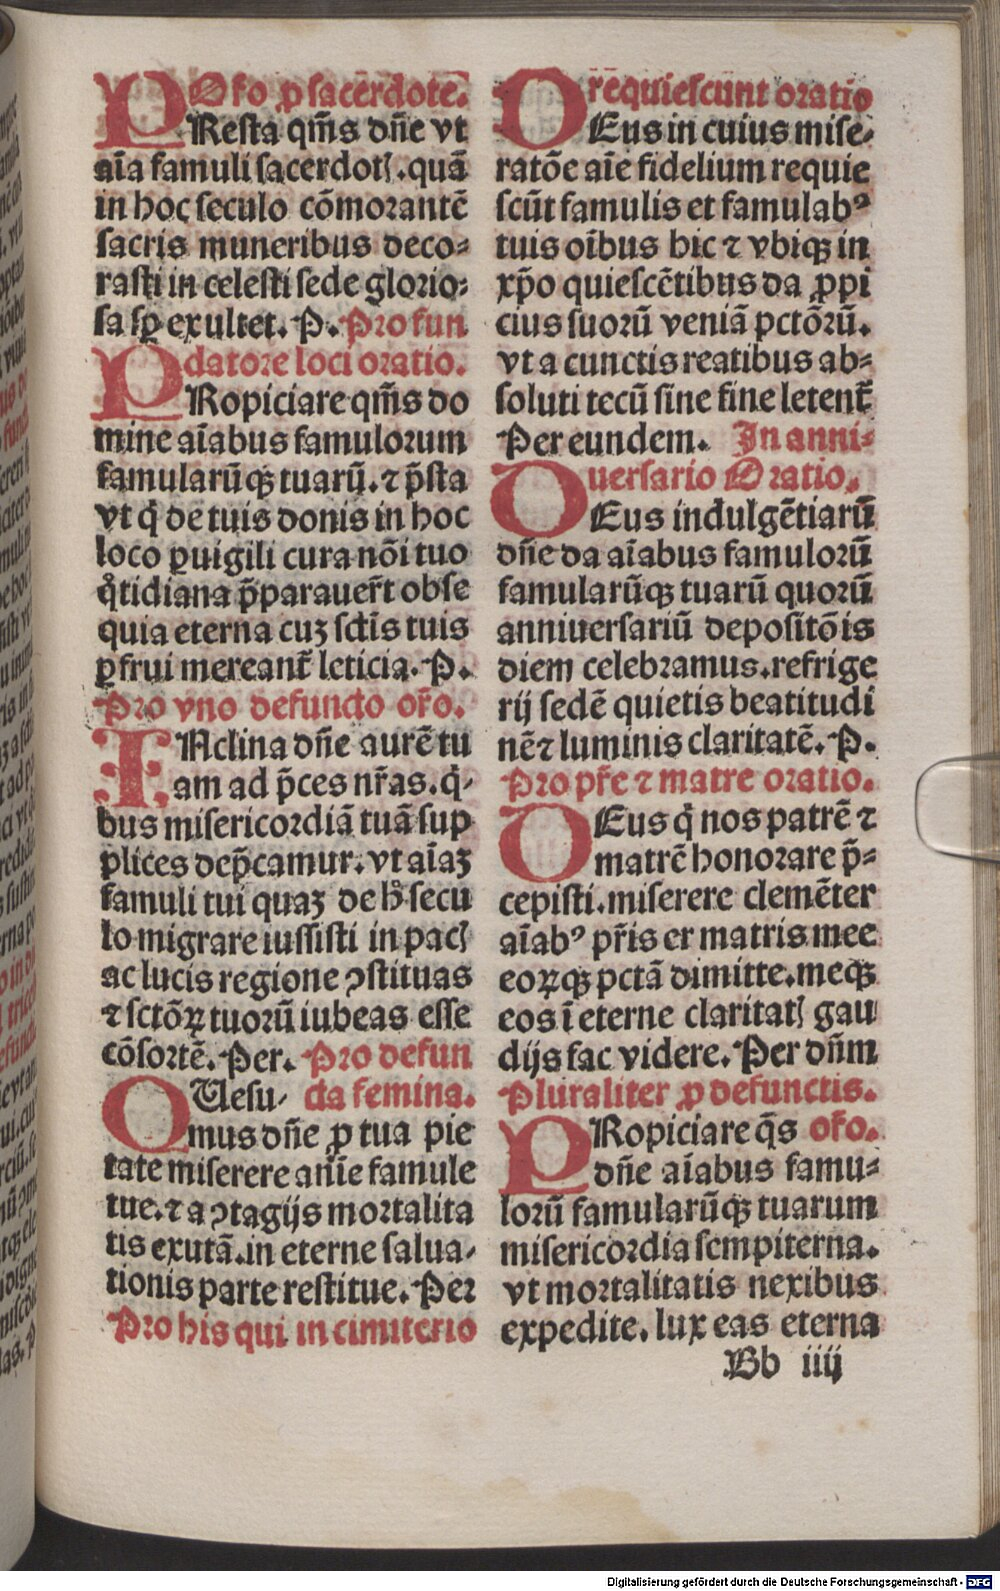 Oro ꝓ sacerdote.
PResta qm̄s dn̄e vt
aīa famuli sacerdotꝭ.quā
in hoc seculo cōmorantē
sacris muneribus deco⸗
rasti in celesti sede glorio⸗
sa sꝑ exultet. P. Pro fun
datore loci oratio.
PRopiciare qm̄s do
mine aīabus famulorum
famularūqꝫ tuarū.⁊ p̄sta
vt q̇ de tuis donis in hoc
loco ꝑuigili cura nōi tuo
q̊tidiana p̄parauer̄t obse
quia eterna cuꝫ sctīs tuis
ꝑfrui mereant᷑ leticia. P.
Pro vno defuncto or̄o.
INclina dn̄e aurē tu
am ad p̄ces nr̄as.q̇⸗
bus misericordiā tuā sup
plices dep̄camur.vt aīaꝫ
famuli tui quaꝫ de h̊ secu
lo migrare iussisti in pacꝭ
ac lucis regione ꝯstituas
⁊ sctōꝝ tuorū iubeas esse
cōsortē. Per. Pro defun
cta femina.
QUesu⸗
mus dn̄e ꝓ tua pie
tate miserere anīe famule
tue.⁊ a ꝯtagijs mortalita
tis exutā.in eterne salua⸗
tionis parte restitue. Per
Pro his qui in cimiterio
reqūiescunt oratio
DEus in cuius mise⸗
ratōe aīe fidelium requie
scūt famulis et famulabꝰ
tuis oībus hic ⁊ vbiqꝫ in
xp̄o quiescētibus da ꝓpi
cius suorū veniā pctōrū.
vt a cunctis reatibus ab⸗
soluti tecū sine fine letent᷑
Per eundem. In anni⸗
uersario Oratio.
DEus indulgētiarū
dn̄e da aīabus famulorū
famularūqꝫ tuarū quorū
anniuersariū depositōis
diem celebramus.refrige
rij sedē quietis beatitudi
nē⁊ luminis claritatē. P.
Pro pr̄e ⁊ matre oratio.
DEus q̇ nos patrē ⁊
matrē honorare p̄⸗
cepisti.miserere clemēter
aīabꝰ pr̄is er matris mee
eoꝝqꝫ pctā dimitte.meqꝫ
eos ī eterne claritatꝭ gau
dijs fac videre. Per dn̄m
Pluraliter ꝓ defunctis.
PRopiciare q̄s or̄o.
dn̄e aīabus famu⸗
lorū famularūqꝫ tuarum
misericordia sempiterna.
vt mortalitatis nexibus
expedite. lux eas eterna
Bb iiij
Digitalisierung gefördert durch die Deutsche Forschungsgemeinschaft - DFG